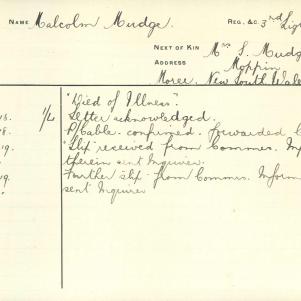 NAME Malcolm Mudge. REG. &C. 3rd Lig
NEXT OF KIN Mrs S. Mudg
ADDRESS Moppin
Moree. New South Wale
"Died of Illness".
18. 1/4 Letter acknowledged.
18. P/Cable. confirmed. Forwarded C
19. "Slip" received from Commrs. Inf
therein sent Inquirer.
19. Further slip from Commrs. Inform
sent Inquirer